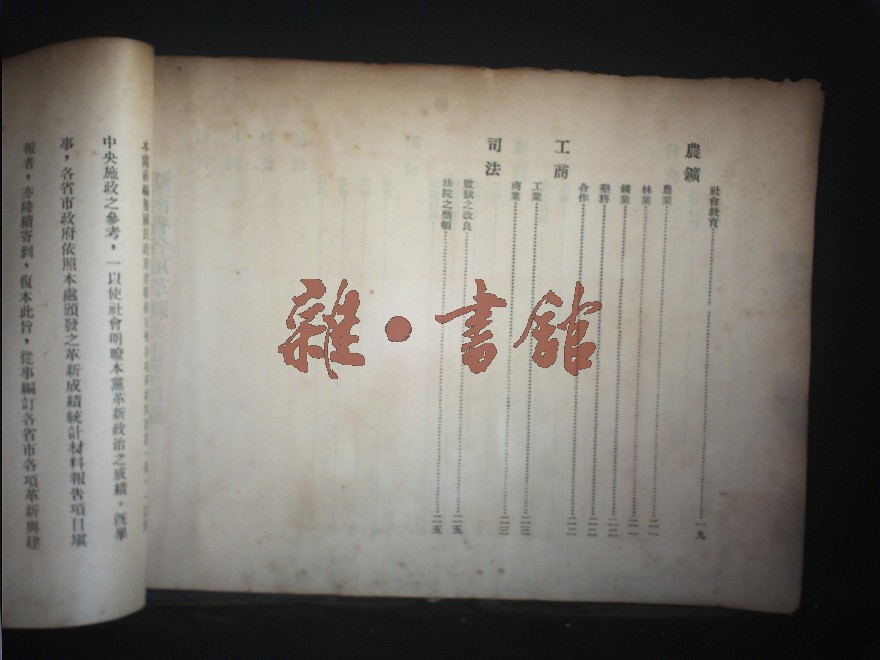 社會教育 一九
農鑛
農業 二一
林業 二一
鑛業 二一
墾務 二二
合作 二二
工商
工業 二三
商業 二三
司法
監獄之改良 二五
法院之整頓 二五
雜·書館
中央施政之參考，一以使社會明瞭本黨革新政治之成績。旣畢
事，各省市政府依照本處頒發之革新成績統計材料報告項目塡
報者，亦陸續寄到，復本此旨，從事編訂各省市各項革新與建